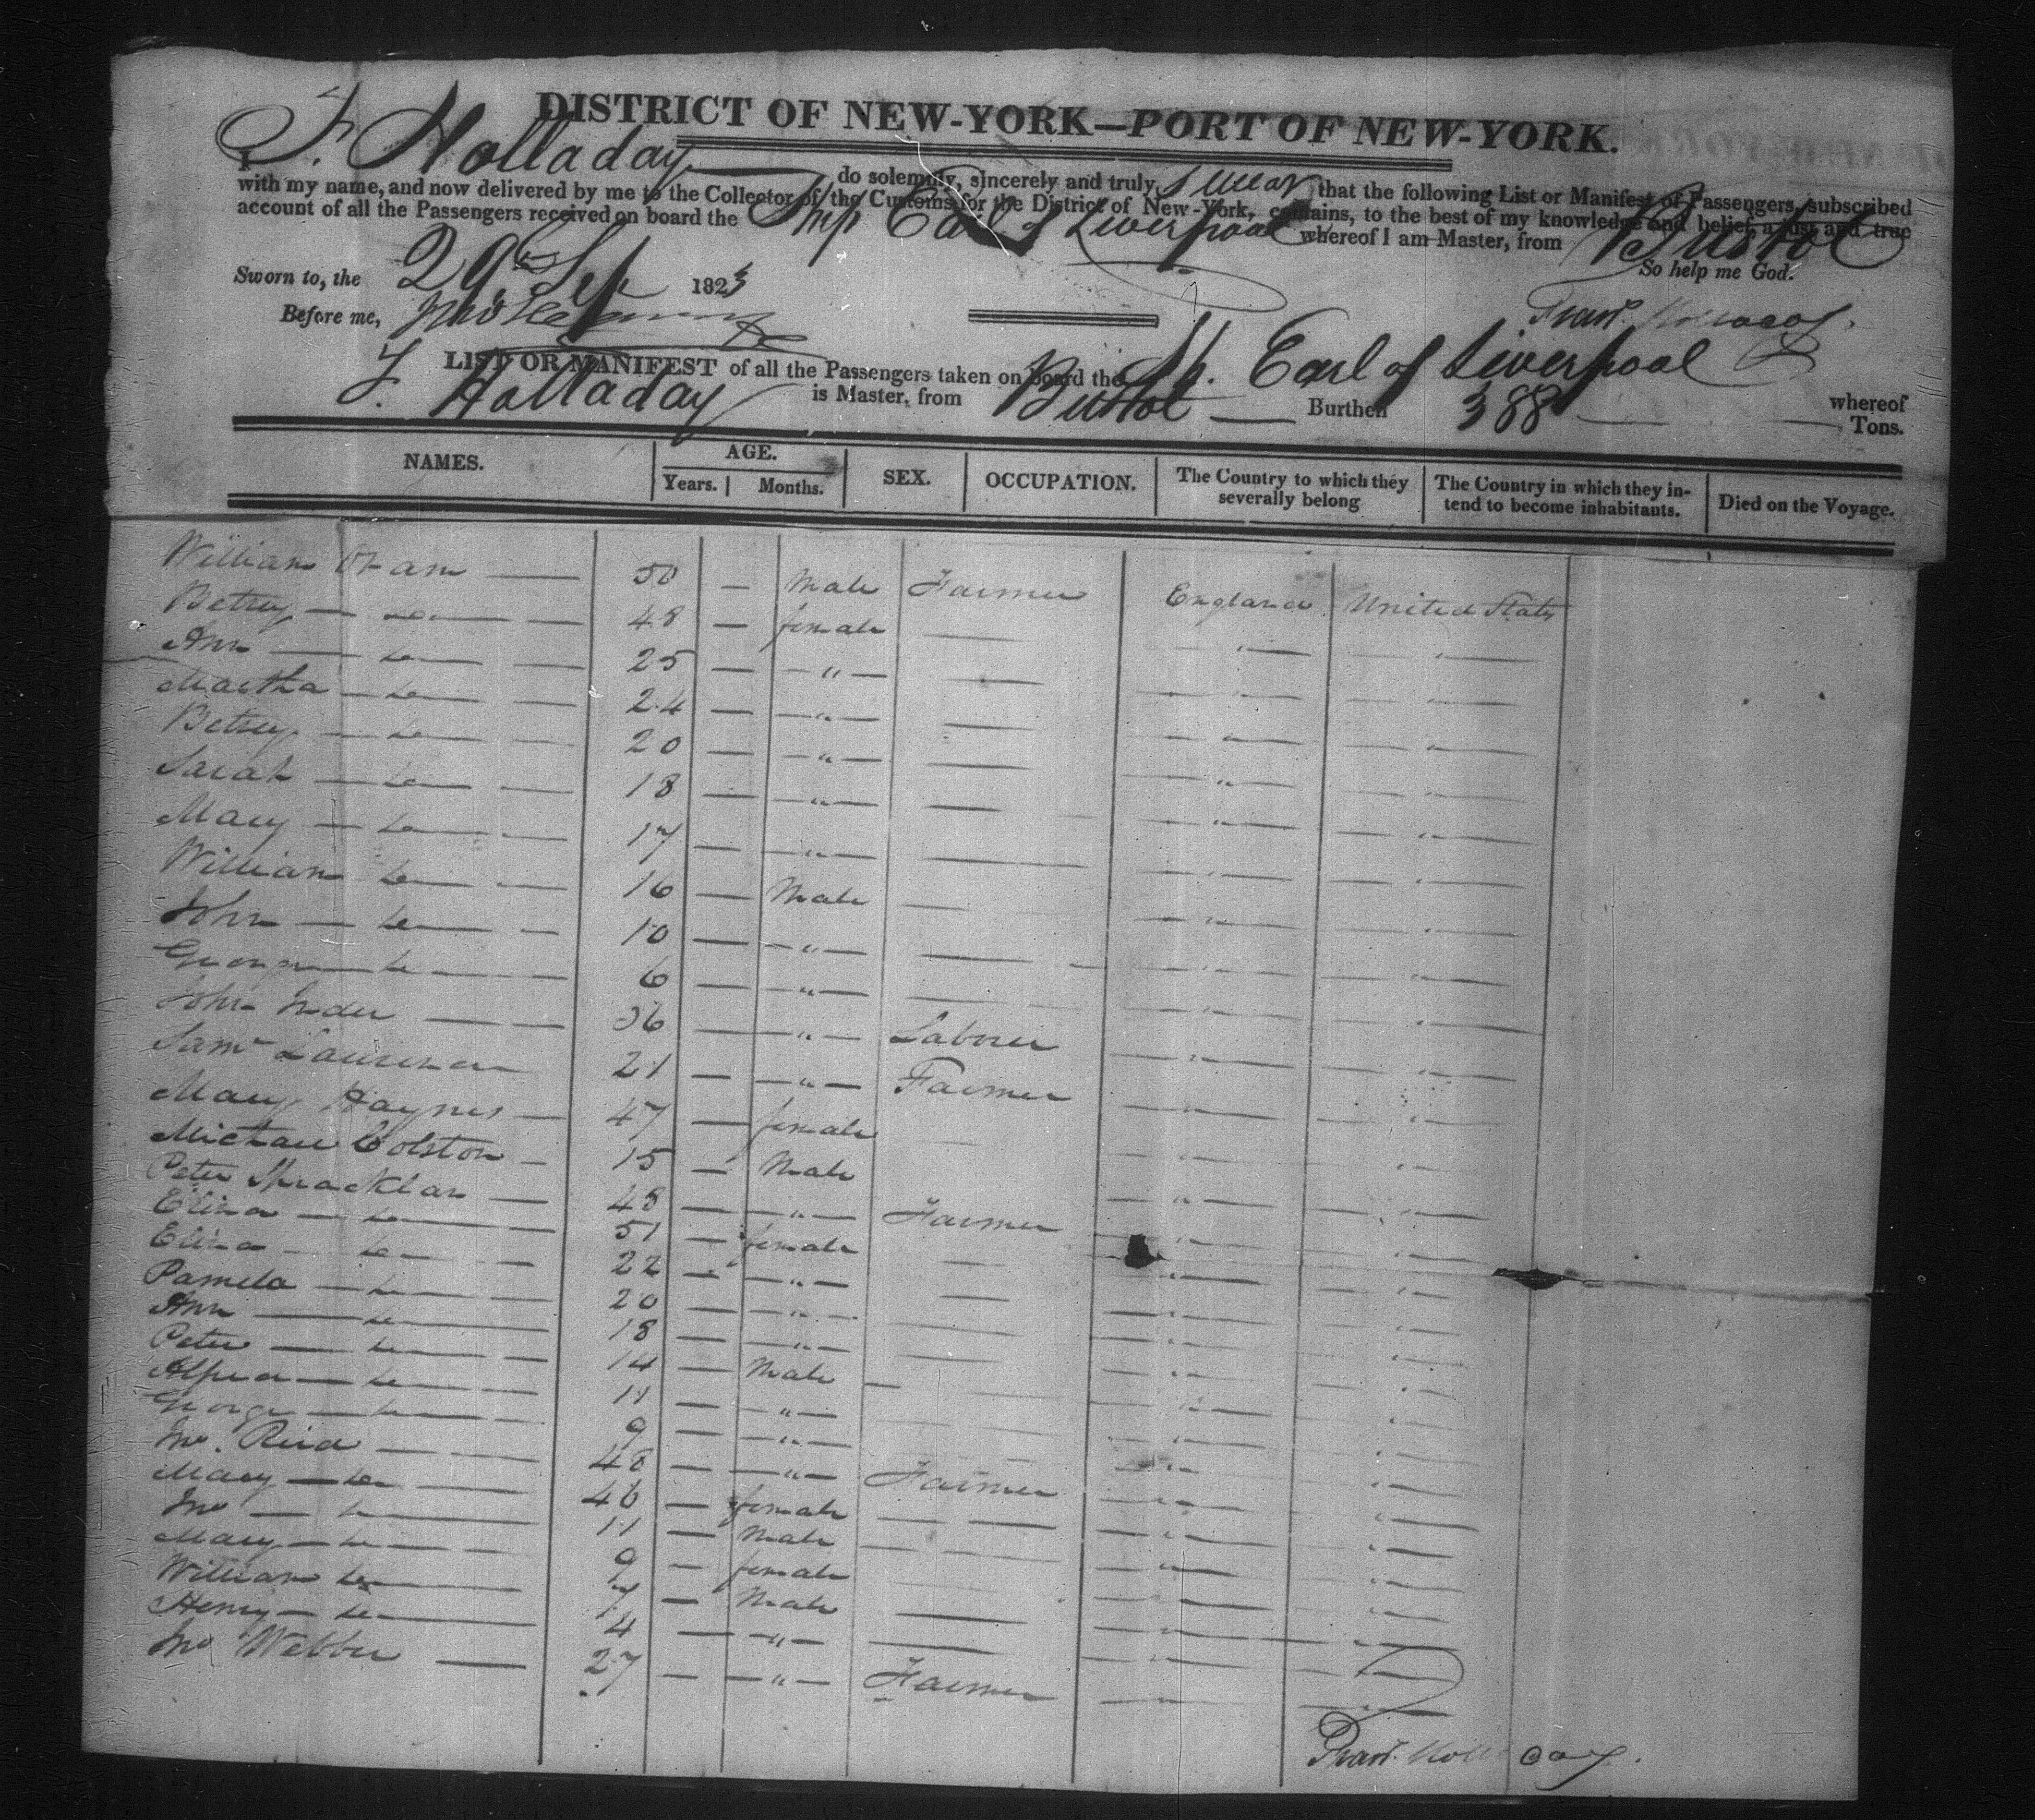 DISTRICT OF NEW-YORK—PORT OF NEW-YORK.
I F. Holladay do solemnly, sincerely and truly swear that the following List or Manifest of Passengers, subscribed
with my name, and now delivered by me to the Collector of the Customs for the District of New-York, contains, to the best of my knowledge and belief, a just and true
account of all the Passengers received on board the Ship Earl of Liverpool whereof I am Master, from Bristol
So help me God.
Sworn to, the 29th Sep 1823
Before me,
Fran. Holladay.
LIST OR MANIFEST of all the Passengers taken on board the Sh. Earl of Liverpool whereof
F. Holladay is Master, from Bristol — Burthen 388 — Tons.
NAMES. AGE. Years. Months. SEX. OCCUPATION. The Country to which they severally belong The Country in which they intend to become inhabitants. Died on the Voyage.
William 50 — Male Farmer England United States
Betsey — do — 48 — female — " "
Ann — do — 25 — " — " "
Martha — do — 24 — " — " "
Betsey — do — 20 — " — " "
Sarah — do — 18 — " — " "
Mary — do — 17 — " — " "
William do — 16 — Male — " "
John — do — 10 — " — " "
George — do — 6 — " — " "
John — 36 — " Labourer " "
Saml Laurence 21 — " Farmer " "
Mary Haynes — 47 — female — " "
Michael Colston — 15 — Male " "
Peter Spracklan — 48 — " Farmer " "
Eliza — do — 51 — female — " "
Eliza — do — 22 — " — " "
Pamela — do — 20 — " — " "
Ann — do — 18 — " — " "
Peter — do — 14 — Male — " "
Alfred — do — 11 — " — " "
George — do — 9 — " — " "
Jno. Reid — 48 — " Farmer " "
Mary — do — 46 — female — " "
Jno — do — 11 — Male — " "
Mary — do — 9 — female — " "
William do — 7 — Male — " "
Henry — do — 4 — " — " "
Jno Webber — 27 — " Farmer " "
Fran. Holladay.